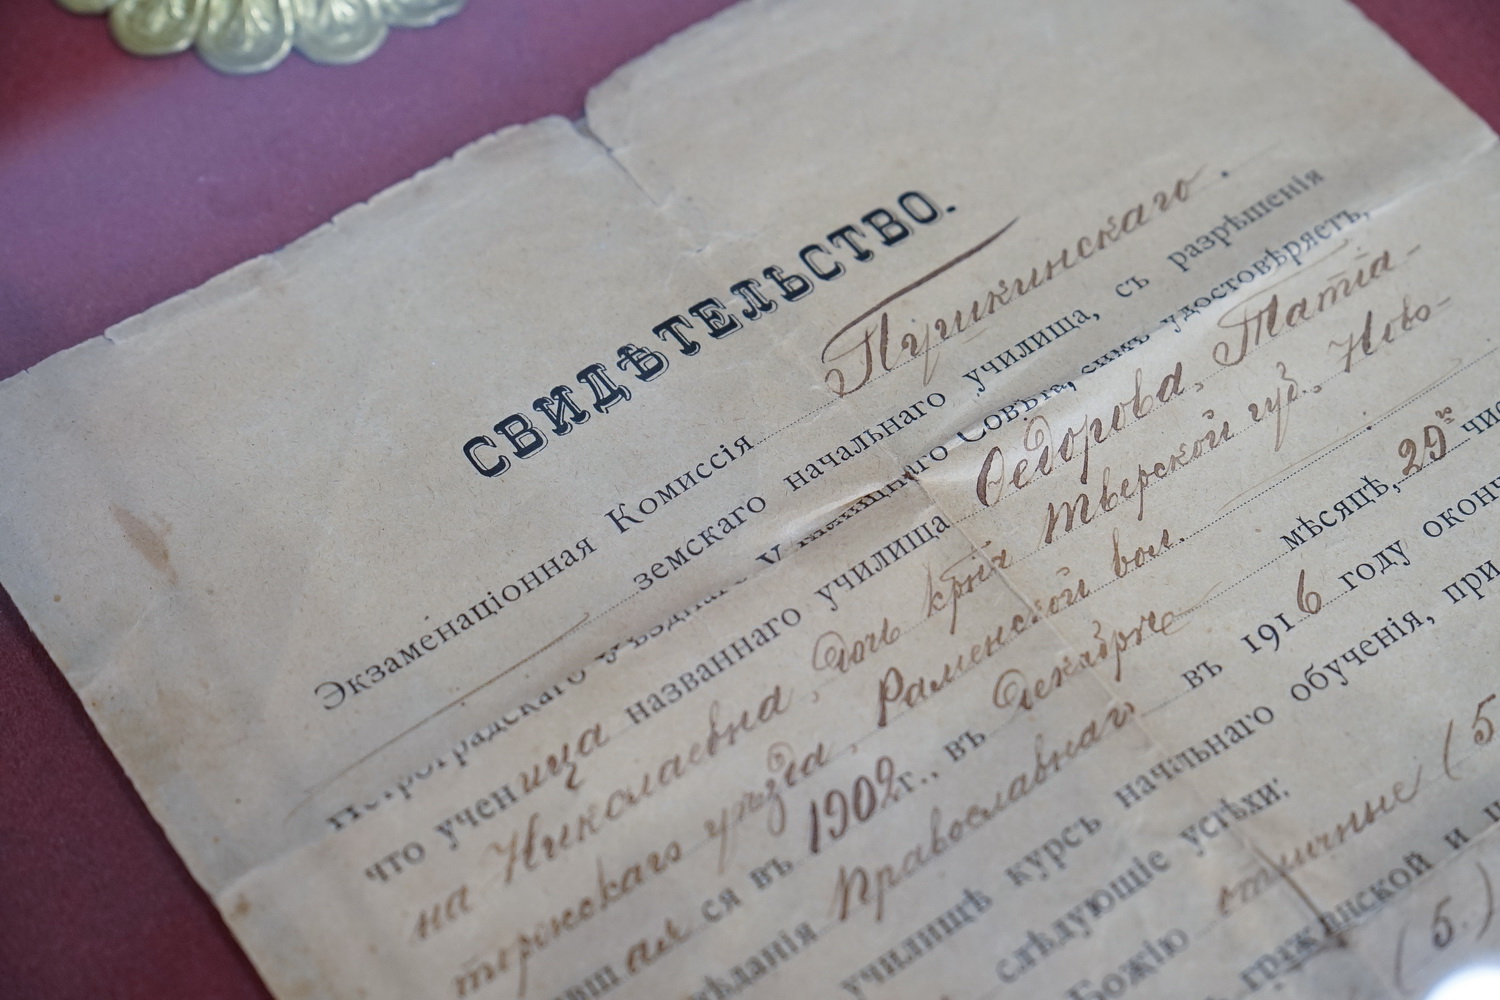 СВИДѢТЕЛЬСТВО.
Экзаменаціонная Комиссія Пушкинскаго.
земскаго начальнаго училища, съ разрѣшенія
Петроградскаго Уѣзднаго Училищнаго Совѣта, симъ удостовѣряетъ,
что ученица названнаго училища Ѳедорова, Татіа-
на Николаевна, дочь крпн Тверской губ., Ново-
торжскаго уѣзда, Раменской вол.
ая ся въ 1902 г., въ Декабрѣ мѣсяцѣ, 29го
Православнаго въ 1916 году
училищѣ курсъ начальнаго обученія, при
слѣдующіе успѣхи:
Божію отличные (5
гражданской и
(5.)